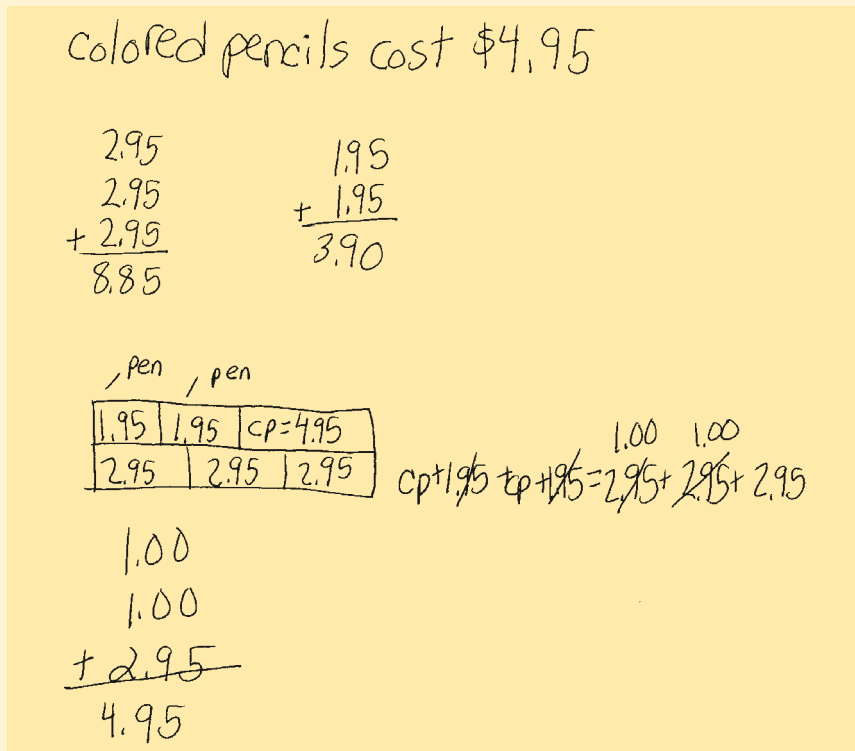 colored pencils cost $4.95
2.95
2.95
+ 2.95
8.85
1.95
+ 1.95
3.90
, pen , pen
1.95 1.95 cp=4.95
2.95 2.95 2.95
1.00 1.00
cp+1.95 +cp+1.95=2.95+2.95+2.95
1.00
1.00
+ 2.95
4.95